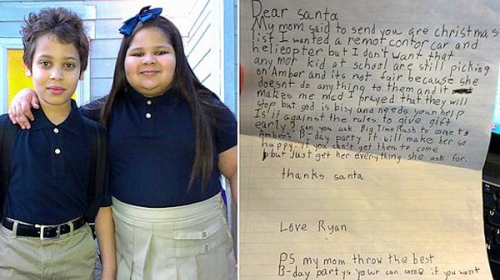 Dear santa
My mom said to send you are christmas
list I wanted a remot contor car and
helieopter but I don't want that
any mor kid at school are still picking
on Amber and its not fair because she
doesnt do anything to them and it
makes me mad I prayed that they will
stop but god is bisy and needs your help
Is it against the rules to give gift
early? can you ask Big Time Rush to come to
Amber's B-day party it will make her so
happy. If you can't get them to come
but just get her everything she ask for.
thanks santa
Love Ryan
PS my mom throw the best
B-day partys your can come if you want